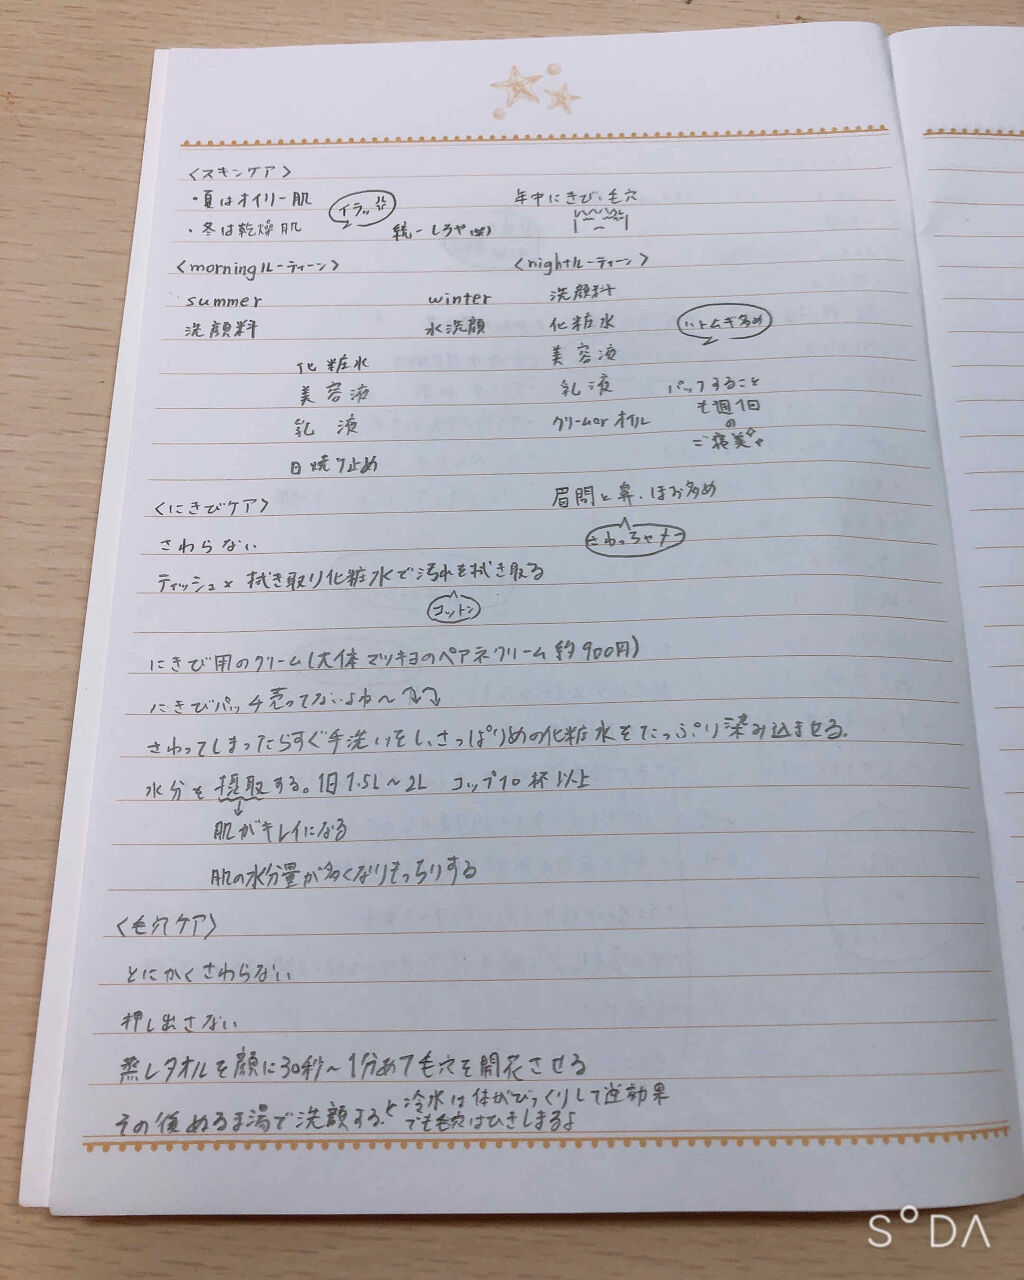 〈スキンケア〉
・夏はオイリー肌
イラッ
年中にきび、毛穴
・冬は乾燥肌
統一しろや(笑)
〈morningルーティーン〉
summer
winter
洗顔料
水洗顔
化粧水
美容液
乳液
日焼け止め
〈nightルーティーン〉
洗顔料
化粧水
ハトムギ多め
美容液
乳液
クリームorオイル
パックすること
も週1回
の
ご褒美
〈にきびケア〉
眉間と鼻、ほお多め
さわらない
さわっちゃメッ
ティッシュ× 拭き取り化粧水で汚れを拭き取る
コットン
にきび用のクリーム(大体マツキヨのペアネクリーム約900円)
にきびパッチ売ってないよね〜
さわってしまったらすぐ手洗いをし、さっぱりめの化粧水をたっぷり染み込ませる。
水分を摂取する。1日1.5L〜2L コップ10杯以上
↓
肌がキレイになる
肌の水分量が多くなりもっちりする
〈毛穴ケア〉
とにかくさわらない
押し出さない
蒸しタオルを顔に30秒〜1分あて毛穴を開花させる
その後ぬるま湯で洗顔する。
冷水は体がびっくりして逆効果
でも毛穴はひきしまるよ
SODA